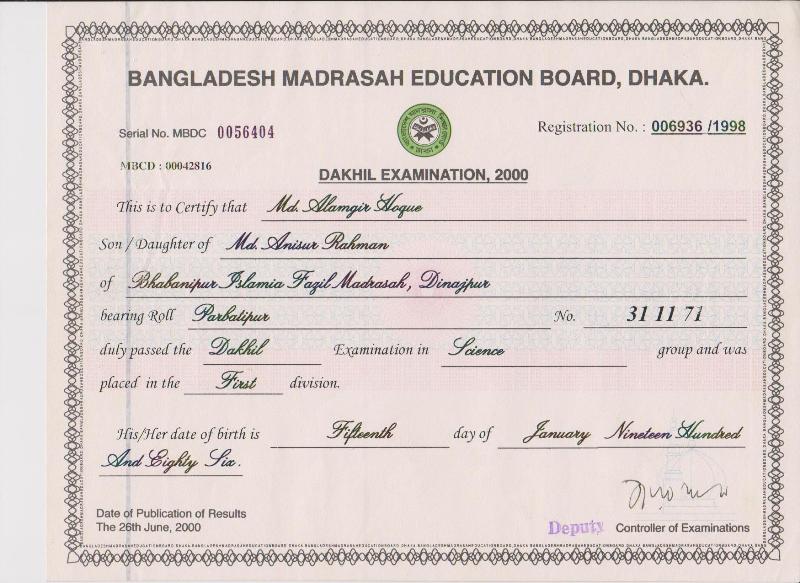 BANGLADESH MADRASAH EDUCATION BOARD, DHAKA.
Serial No. MBDC 0056404
Registration No. : 006936 /1998
MBCD : 00042816
DAKHIL EXAMINATION, 2000
This is to Certify that Md. Alamgir Hoque
Son / Daughter of Md. Anisur Rahman
of Bhabanipur Islamia Fazil Madrasah, Dinajpur
bearing Roll Parbatipur No. 31 11 71
duly passed the Dakhil Examination in Science group and was
placed in the First division.
His/Her date of birth is Fifteenth day of January Nineteen Hundred
And Eighty Six.
Date of Publication of Results
The 26th June, 2000
Deputy Controller of Examinations